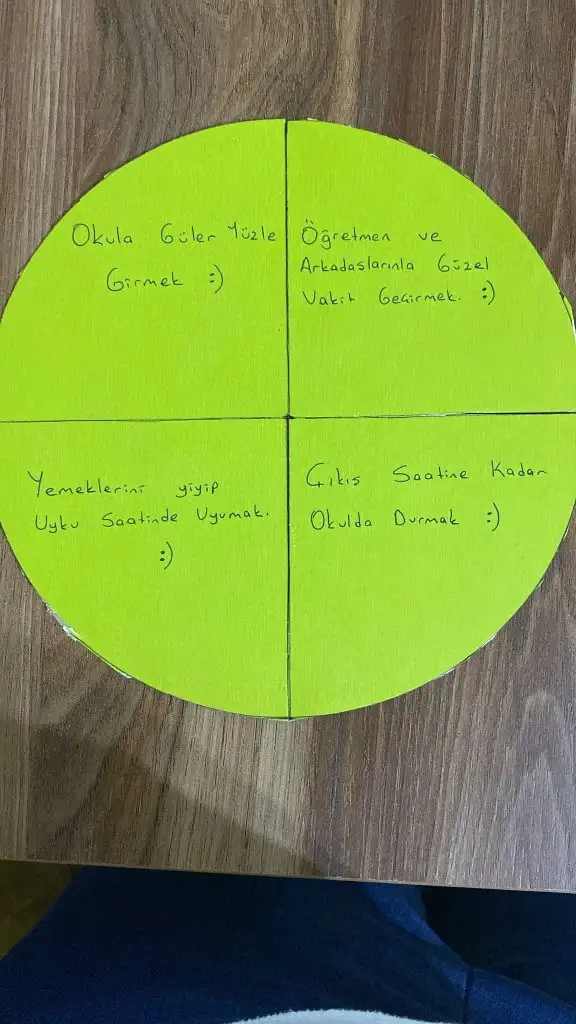 Okula Güler Yüzle
Girmek :)
Öğretmen ve
Arkadaslarınla Güzel
Vakit Gecirmek. :)
Yemeklerini yiyip
Uyku Saatinde Uyumak.
:)
Çıkıs Saatine Kadar
Okulda Durmak :)